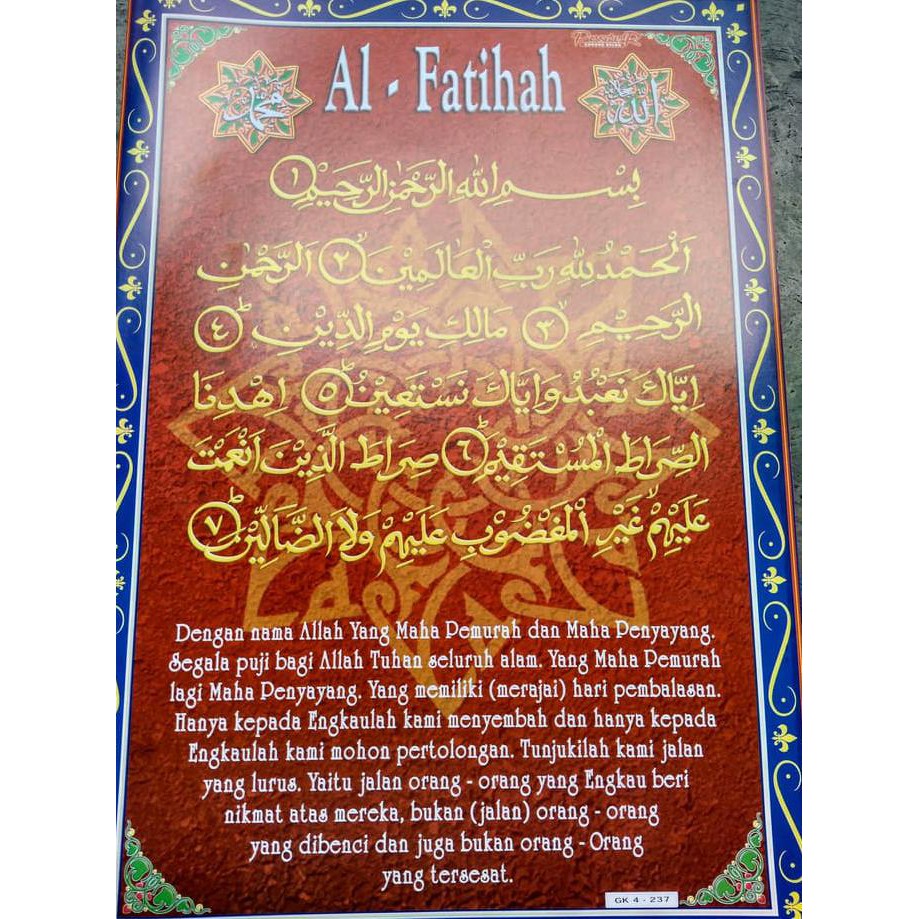 Al - Fatihah
محمد
الله
بِسْمِ اللهِ الرَّحْمٰنِ الرَّحِيْمِ ١
اَلْحَمْدُ لِلّٰهِ رَبِّ الْعَالَمِيْنَ ٢ اَلرَّحْمٰنِ
الرَّحِيْمِ ٣ مَالِكِ يَوْمِ الدِّيْنِ ٤
اِيَّاكَ نَعْبُدُ وَاِيَّاكَ نَسْتَعِيْنُ ٥ اِهْدِنَا
الصِّرَاطَ الْمُسْتَقِيْمَ ٦ صِرَاطَ الَّذِيْنَ اَنْعَمْتَ
عَلَيْهِمْ غَيْرِ الْمَغْضُوْبِ عَلَيْهِمْ وَلَا الضَّالِّيْنَ ٧
Dengan nama Allah Yang Maha Pemurah dan Maha Penyayang.
Segala puji bagi Allah Tuhan seluruh alam. Yang Maha Pemurah
lagi Maha Penyayang. Yang memiliki (merajai) hari pembalasan.
Hanya kepada Engkaulah kami menyembah dan hanya kepada
Engkaulah kami mohon pertolongan. Tunjukilah kami jalan
yang lurus. Yaitu jalan orang - orang yang Engkau beri
nikmat atas mereka, bukan (jalan) orang - orang
yang dibenci dan juga bukan orang - Orang
yang tersesat.
GK 4 - 237